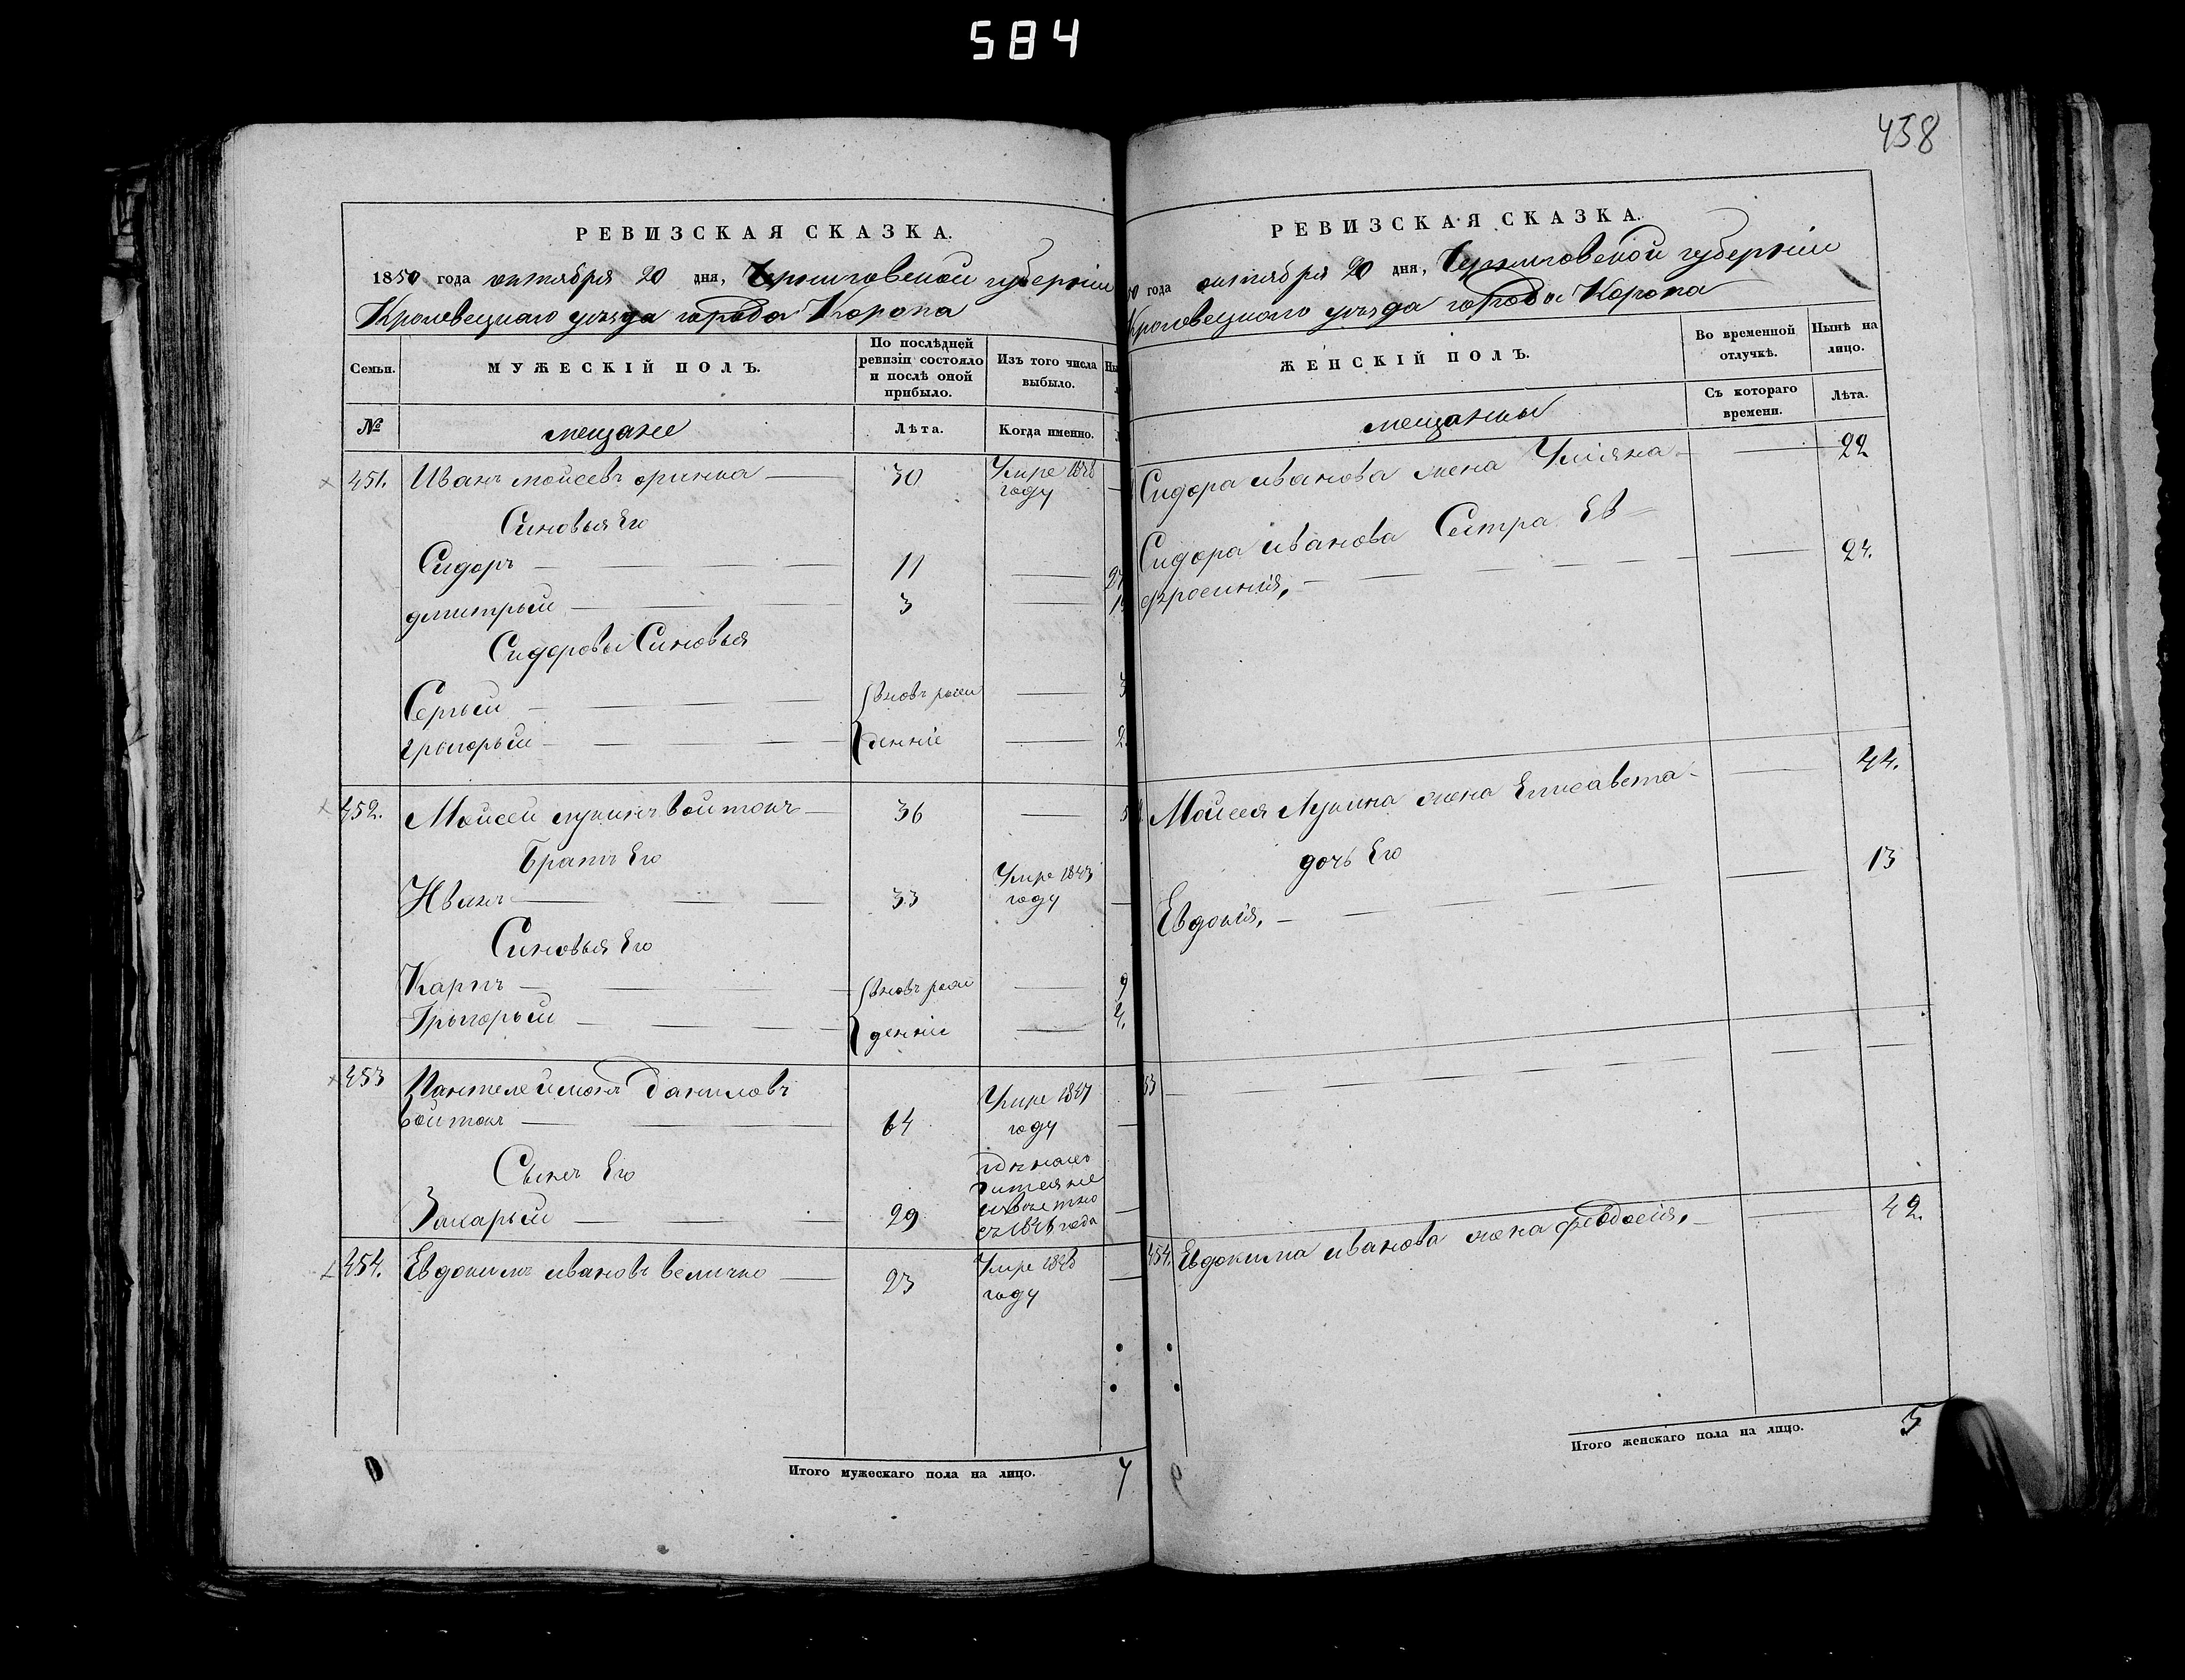 584
458
РЕВИЗСКАЯ СКАЗКА.
1850 года октября 20 дня, Черниговской губерніи
Кролевецкаго уѣзда города Коропа
Семьи.
МУЖЕСКІЙ ПОЛЪ.
По послѣдней
ревизіи состояло
и послѣ оной
прибыло.
Изъ того числа
выбыло.
№
мещане
Лѣта.
Когда именно.
451. Иванъ моисеевъ 30 Умре
году
Синовья Его
Сидоръ 11
дмитрый 3
Сидоровы Синовья
Сергый вновъ рож
грыгорый денніе 2.
452. Моисей лукинъ Войтокъ 36
Братъ Его
Иванъ 33 Умре 1843
году
Синовья Его
Карпъ вновъ рож 9
Грыгорый денніе 4.
453 Пантелеймонъ даниловъ
Войтокъ 64 Умре 1847
году
Сынъ Его
Захарый 29
года
454. Евдокимъ ивановъ величко 23 Умре
году
Итого мужескаго пола на лицо. 7
РЕВИЗСКАЯ СКАЗКА.
50 года октября 20 дня, Черниговской губерніи
Кролевецкаго уѣзда города Коропа
ЖЕНСКІЙ ПОЛЪ.
Во временной
отлучкѣ.
Нынѣ на
лицо.
мещанки
Съ котораго
времени.
Лѣта.
Сидора иванова жена Улияна 22
Сидора иванова Сестра Ев
фросинія, 24.
Моисея Лукина жена Елисавета 44.
дочь Его
Евдокія, 13
53
454. Евдокима иванова жена феодосія, 42.
Итого женскаго пола на лицо. 5